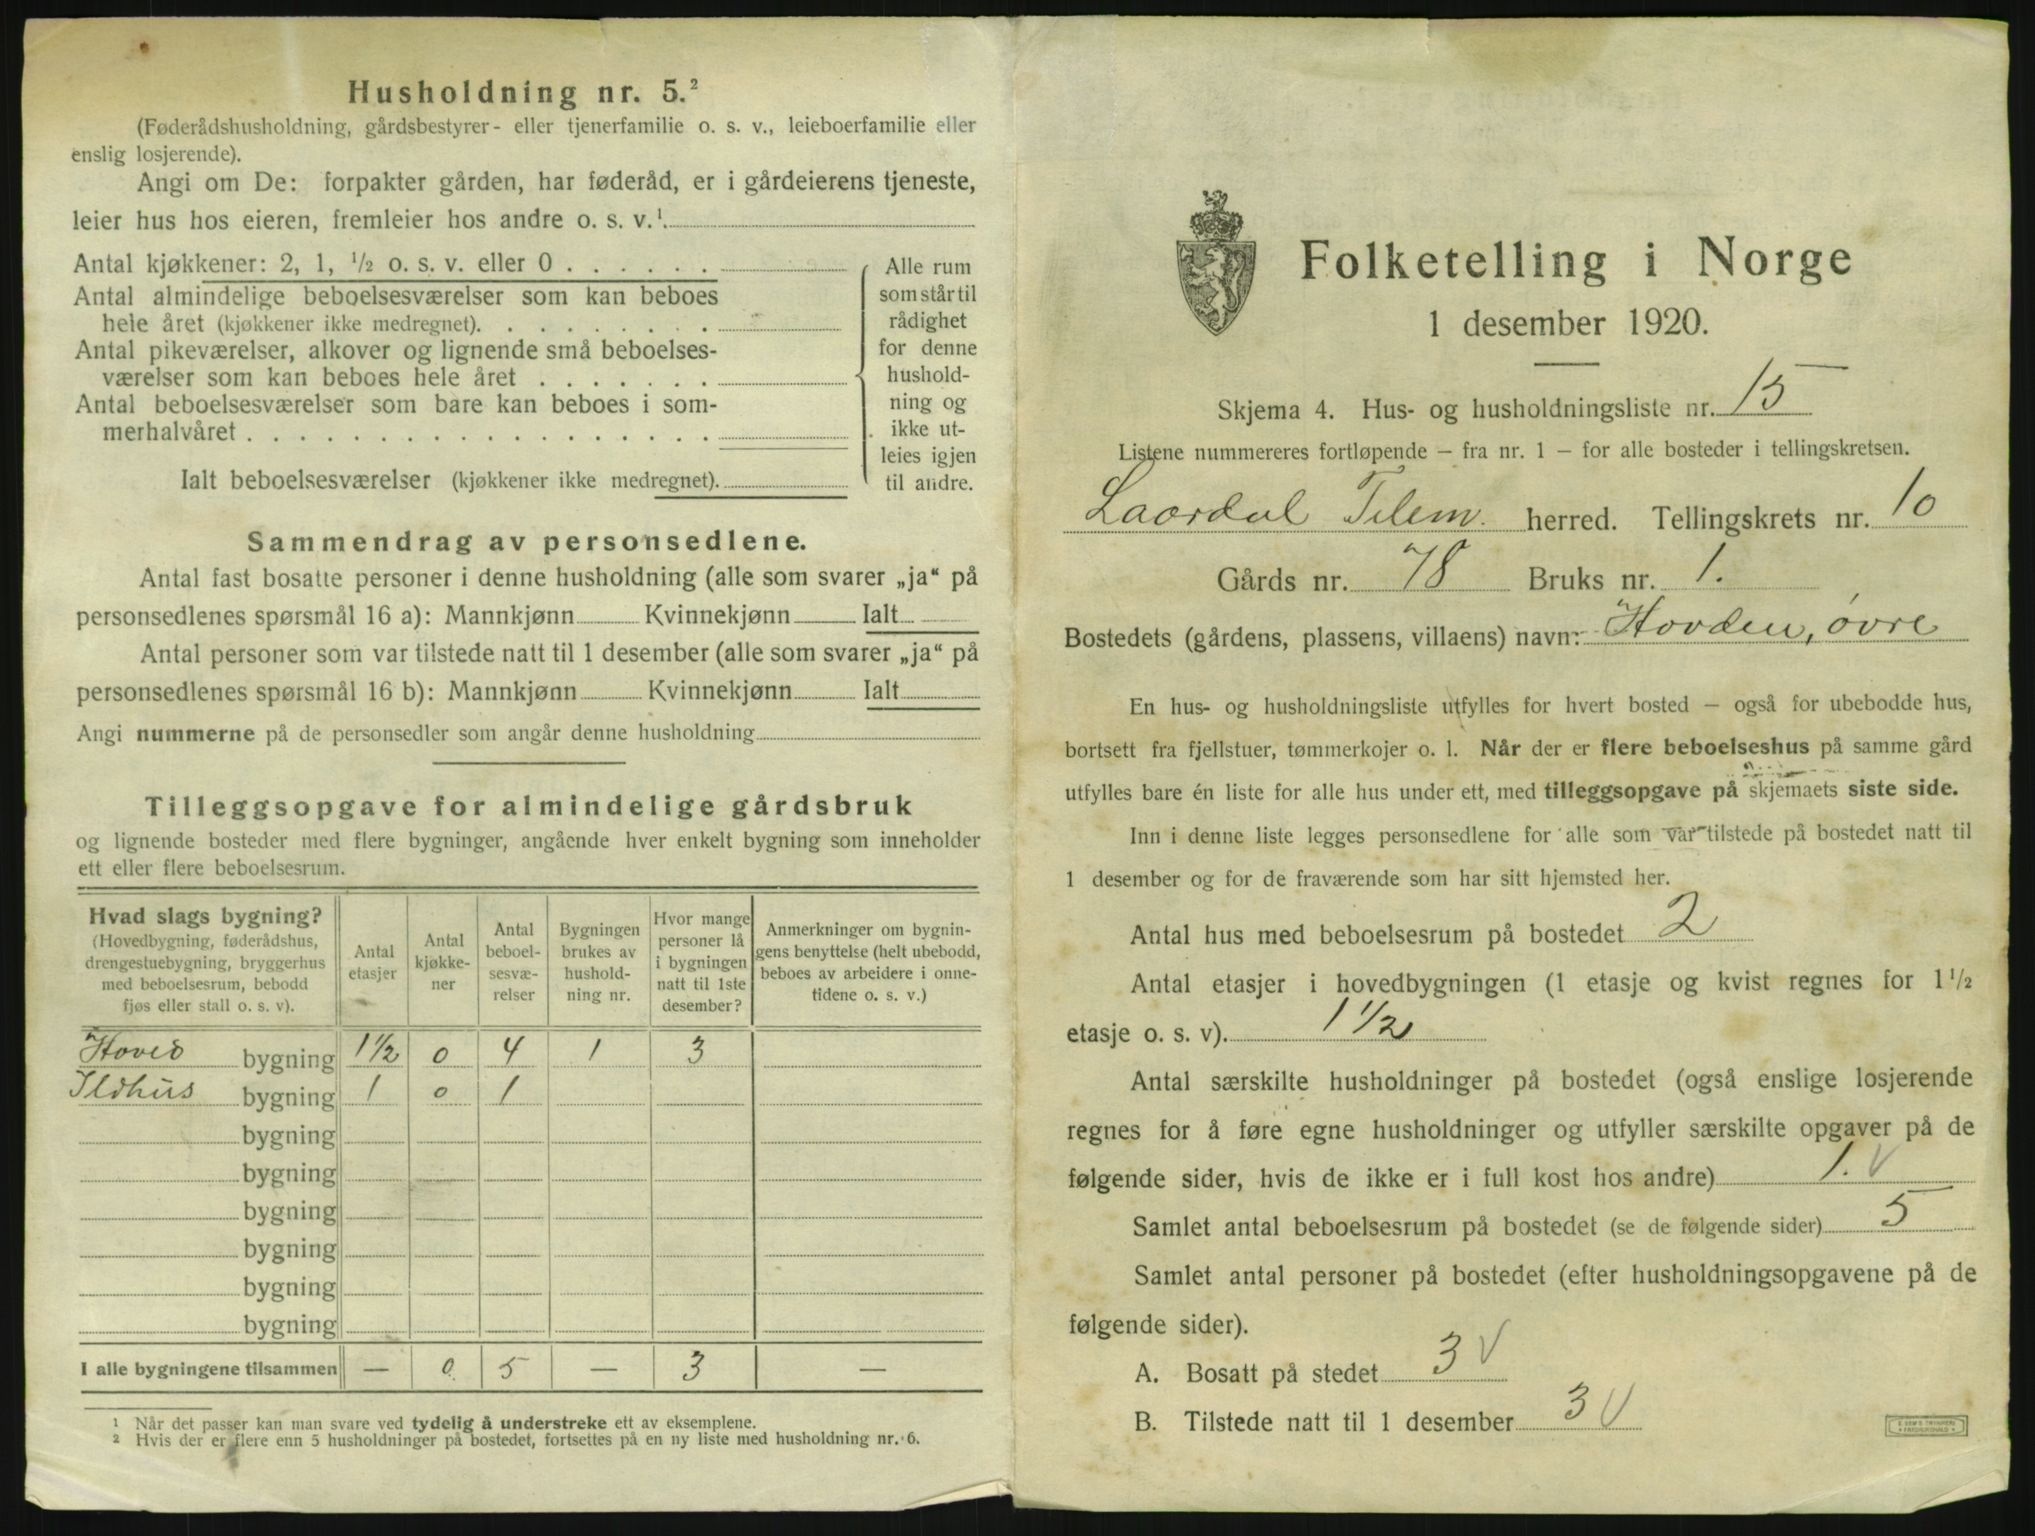 Husholdning nr. 5.²
(Føderådshusholdning, gårdsbestyrer- eller tjenerfamilie o. s. v., leieboerfamilie eller
enslig losjerende).
Angi om De: forpakter gården, har føderåd, er i gårdeierens tjeneste,
leier hus hos eieren, fremleier hos andre o. s. v.¹
Antal kjøkkener: 2, 1, ½ o. s. v. eller 0 . . . . . .
Antal almindelige beboelsesværelser som kan beboes
hele året (kjøkkener ikke medregnet). . . . . . . .
Antal pikeværelser, alkover og lignende små beboelses-
værelser som kan beboes hele året . . . . . . .
Antal beboelsesværelser som bare kan beboes i som-
merhalvåret . . . . . . . . . . . . . . . . . .
Ialt beboelsesværelser (kjøkkener ikke medregnet).
Alle rum
som står til
rådighet
for denne
hushold-
ning og
ikke ut-
leies igjen
til andre.
Sammendrag av personsedlene.
Antal fast bosatte personer i denne husholdning (alle som svarer „ja“ på
personsedlenes spørsmål 16 a): Mannkjønn Kvinnekjønn Ialt
Antal personer som var tilstede natt til 1 desember (alle som svarer „ja“ på
personsedlenes spørsmål 16 b): Mannkjønn Kvinnekjønn Ialt
Angi nummerne på de personsedler som angår denne husholdning
Tilleggsopgave for almindelige gårdsbruk
og lignende bosteder med flere bygninger, angående hver enkelt bygning som inneholder
ett eller flere beboelsesrum.
Hvad slags bygning?
(Hovedbygning, føderådshus,
drengestuebygning, bryggerhus
med beboelsesrum, bebodd
fjøs eller stall o. s. v).
Antal
etasjer
Antal
kjøkke-
ner
Antal
beboel-
sesvæ-
relser
Bygningen
brukes av
hushold-
ning nr.
Hvor mange
personer lå
i bygningen
natt til 1ste
desember?
Anmerkninger om bygnin-
gens benyttelse (helt ubebodd,
beboes av arbeidere i onne-
tidene o. s. v.)
Hoved bygning 1½ 0 4 1 3
Ildhus bygning 1 0 1
bygning
bygning
bygning
bygning
bygning
bygning
I alle bygningene tilsammen — 0 5 — 3 —
¹ Når det passer kan man svare ved tydelig å understreke ett av eksemplene.
² Hvis der er flere enn 5 husholdninger på bostedet, fortsettes på en ny liste med husholdning nr. 6.
Folketelling i Norge
1 desember 1920.
Skjema 4. Hus- og husholdningsliste nr. 15
Listene nummereres fortløpende – fra nr. 1 – for alle bosteder i tellingskretsen.
Laardal Telem. herred. Tellingskrets nr. 10
Gårds nr. 78 Bruks nr. 1.
Bostedets (gårdens, plassens, villaens) navn: Hovden, øvre
En hus- og husholdningsliste utfylles for hvert bosted – også for ubebodde hus,
bortsett fra fjellstuer, tømmerkojer o. l. Når der er flere beboelseshus på samme gård
utfylles bare én liste for alle hus under ett, med tilleggsopgave på skjemaets siste side.
Inn i denne liste legges personsedlene for alle som var tilstede på bostedet natt til
1 desember og for de fraværende som har sitt hjemsted her.
Antal hus med beboelsesrum på bostedet 2
Antal etasjer i hovedbygningen (1 etasje og kvist regnes for 1½
etasje o. s. v). 1½
Antal særskilte husholdninger på bostedet (også enslige losjerende
regnes for å føre egne husholdninger og utfyller særskilte opgaver på de
følgende sider, hvis de ikke er i full kost hos andre) 1. V
Samlet antal beboelsesrum på bostedet (se de følgende sider) 5
Samlet antal personer på bostedet (efter husholdningsopgavene på de
følgende sider).
A. Bosatt på stedet 3 V
B. Tilstede natt til 1 desember 3 V